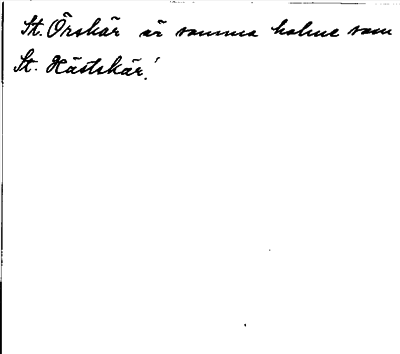 St. Örskär är samma holme som
St. Hästskär!